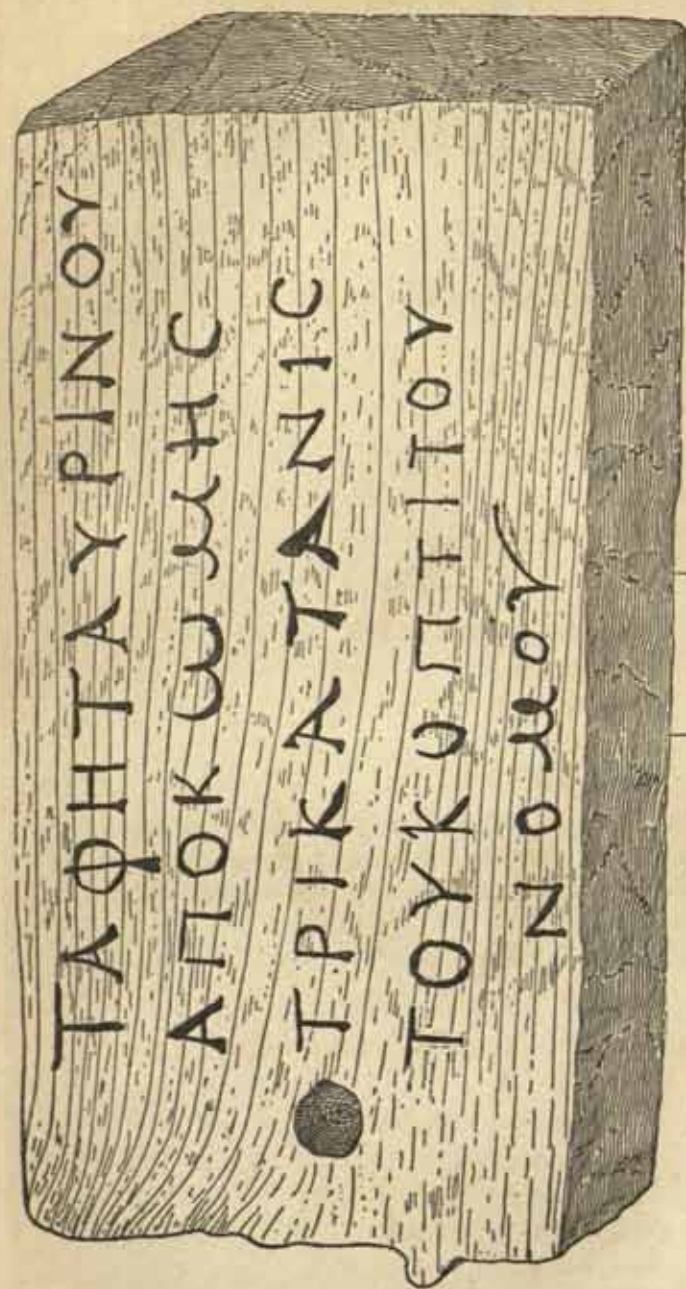 ΤΑΦΗΤΑΥΡΙΝΟΥ
ΑΠΟΚωμΗС
ΤΡΙΚΑΤΑΝΙС
ΤΟΥΚΟΠΤΙΤΟΥ
ΝΟμΟΥ